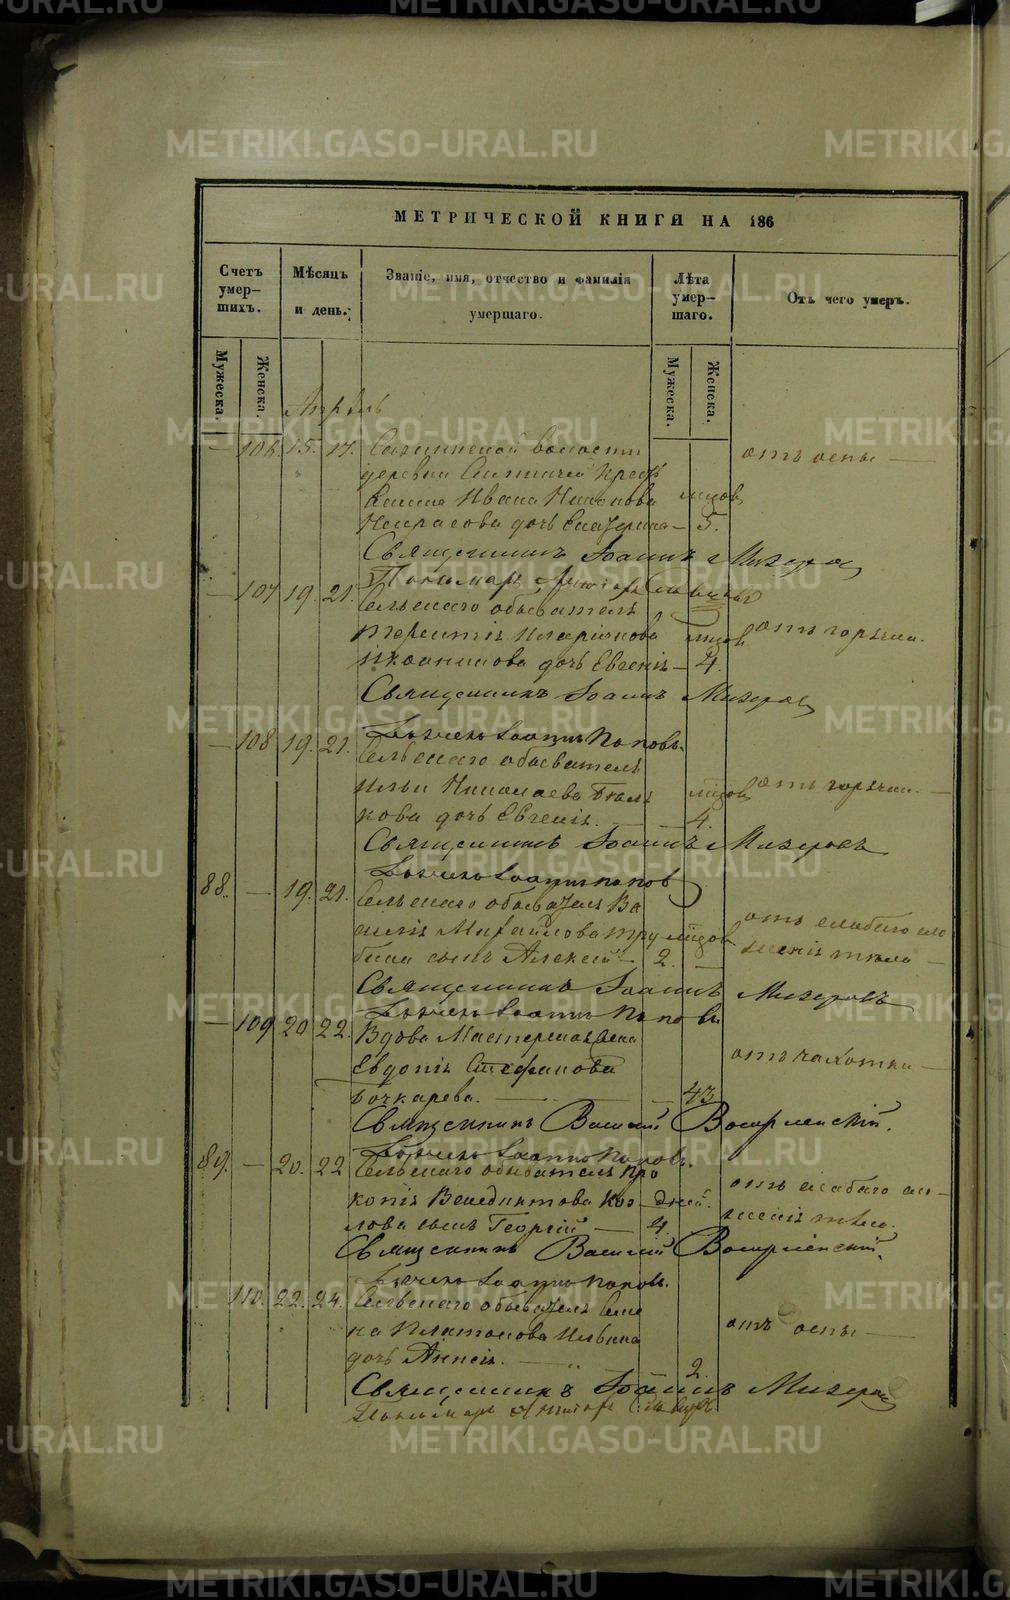 МЕТРИЧЕСКОЙ КНИГИ НА 186
Счетъ умер-шихъ.
Мѣсяцъ и день.
Званіе, имя, отчество и фамилія умершаго.
Лѣта умер-шаго.
Отъ чего умеръ.
Мужеска.
Женска.
Мужеска.
Женска.
Апрѣль
— 106. 15. 17. волости
деревни Крестъ
янина Ивана мѣсяцов
Некрасова дочь Екатерина — 5.
отъ оспы —
Священникъ Іоаннъ Мизеров
Пономарь
— 107 19. 21. Сельскаго обывателя
Терентія Иларіонова мѣсяцов
Иконникова дочь Евгенія — 4.
отъ горячки.
Священникъ Іоаннъ Мизеров
Дьячекъ Іоаннъ Поповъ.
— 108 19. 21. Сельскаго обывателя
Ильи Николаева мѣсяцов
кова дочь Евгенія. — 4.
отъ горячки. —
Священникъ Іоаннъ Мизеровъ
Дьячекъ Іоаннъ Попов
88. — 19. 21. Сельскаго обывателя Ва
силія Михайлова Тру мѣсяцов
бина сынъ Алексѣй — 2. —
отъ слабаго сло
женія тѣла —
Священникъ Іоаннъ Мизеровъ
Дьячекъ Іоаннъ Поповъ
— 109 20 22. Вдова Мастерская жена
Евдокія Стефанова
Бочкарева. — — 43
отъ чахотки —
Священникъ Василій
Дьячекъ Іоаннъ Поповъ.
89. — 20. 22 Сельскаго обывателя Про
копія Венедиктова Коз дней
лова сынъ Георгій — 4.
отъ слабаго сло-
женія тѣла.
Священникъ Василій
Дьячекъ Іоаннъ Поповъ.
110. 22. 24. Сельскаго обывателя
Платонова Ильина
дочь — " 2.
отъ оспы —
Священникъ Іоаннъ Мизеров
Пономарь
METRIKI.GASO-URAL.RU